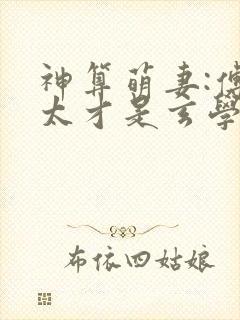 神算萌妻:傅
太才是玄學
布依四姑娘